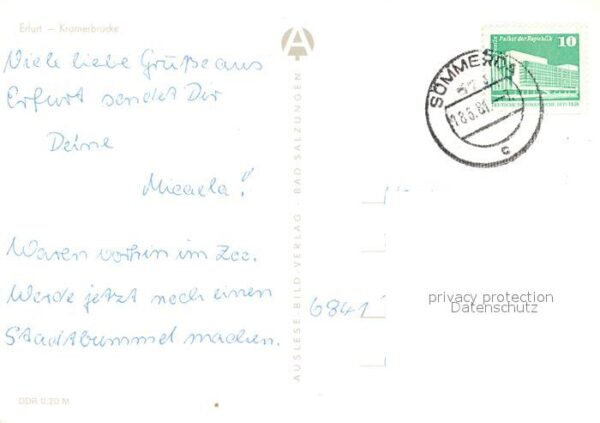 Erfurt — Krämerbrücke
Viele liebe Grüße aus
Erfurt sendet Dir
Deine
Micaela!
Waren vorhin im Zoo.
Werde jetzt noch einen
Stadtbummel machen.
DDR 0,20 M
AUSLESE-BILD-VERLAG · BAD SALZUNGEN
A
Palast der Republik
10
SÖMMERDA
18.6.81
c
6841
privacy protection
Datenschutz